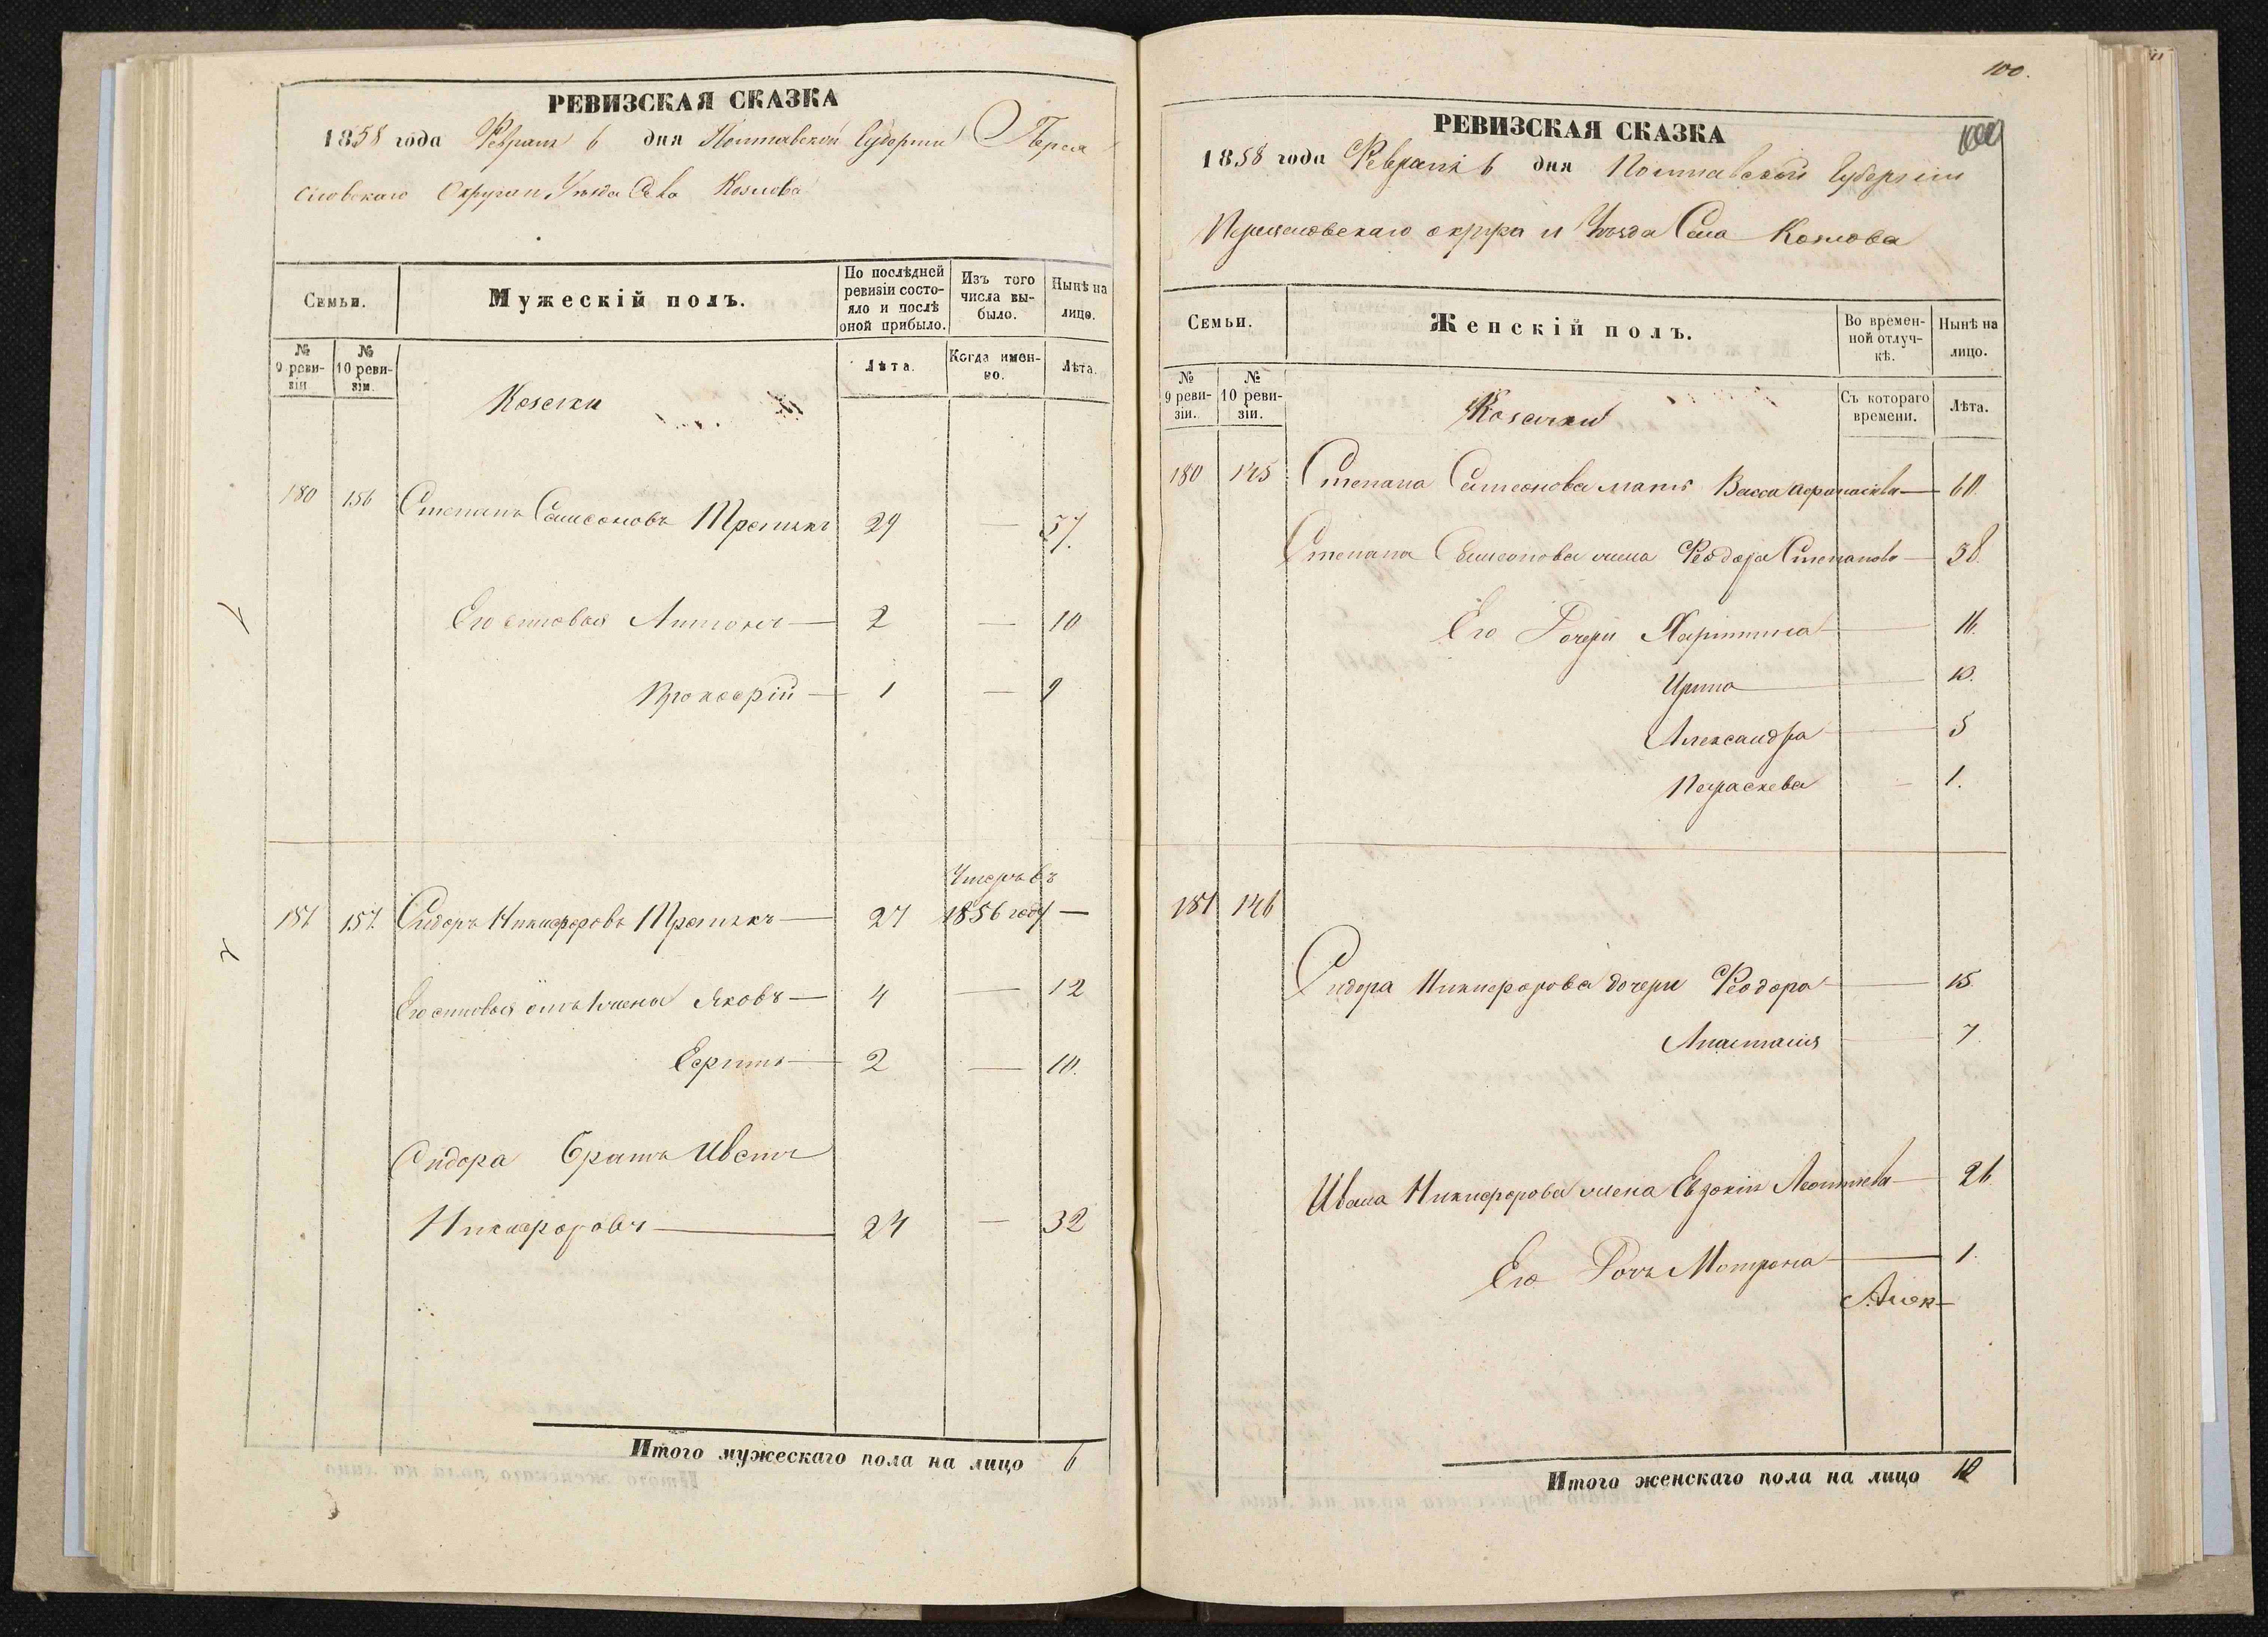 РЕВИЗСКАЯ СКАЗКА
1858 года Февраля 6 дня Полтавской Губернии Перея
словскаго Округа и Уѣзда Села Козлова
Семьи.
Мужескій полъ.
По послѣдней ревизіи состояло и послѣ оной прибыло.
Изъ того числа выбыло.
Нынѣ на лицо.
№ 9 ревизіи
№ 10 ревизіи.
Лѣта.
Когда именно.
Лѣта.
Козаки
180 156 Степанъ Самсоновъ 29 — 37.
Его сыновья Антонъ — 2 — 10
Прокофій — 1 — 9
Умеръ въ
181 157. Сидоръ Никифоровъ — 27 1856 году —
Его сыновья Яковъ — 4 — 12
Ефимъ — 2 — 10.
Сидора братъ Иванъ
Никифоровъ — 24 — 32
Итого мужескаго пола на лицо 6
100.
РЕВИЗСКАЯ СКАЗКА
1858 года Февраля 6 дня Полтавской Губерніи
Переяславскаго округа и Уѣзда Села Козлова
Семьи.
Женскій полъ.
Во временной отлучкѣ.
Нынѣ на лицо.
№ 9 ревизіи.
№ 10 ревизіи.
Съ котораго времени.
Лѣта.
Козачки
180 145 Степана Самсонова мать Васса Афанасіева — 60.
Степана Самсонова жена Феодора Степанова — 38.
Его Дочери Харитина — 16.
Ирина — 10.
Александра — 5
Параскева — 1.
181 146
Сидора Никифорова дочери Феодора — 15.
Анастасія — 7.
Ивана Никифорова жена Евдокія Леонтіева — 26
Его Дочь Мотрона — 1.
Итого женскаго пола на лицо 10